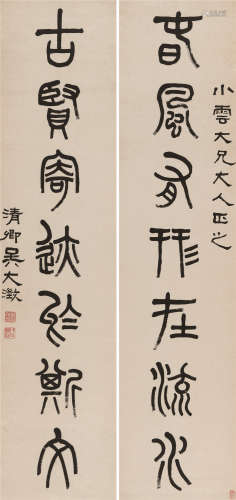 小雲大兄大人正之
春風有形在流水
古賢寄迹於斯文
清卿吳大澂